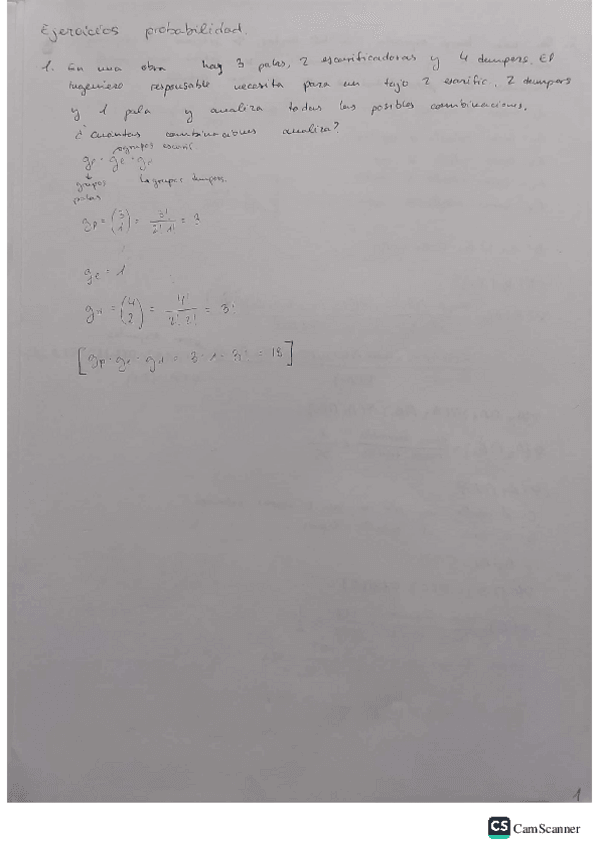 Ejercicios probabilidad.
1. En una obra hay 3 palas, 2 escarificadoras y 4 dumpers. El
Ingeniero responsable necesita para un tajo 2 escarific, 2 dumpers
y 1 pala y analiza todas las posibles combinaciones,
¿Cuantas combinaciones analiza?
grupos escarif.
gp · ge · gd
grupos palas
grupos dumpers.
gp = (3 1) = 3! / 2! 1! = 3
ge = 1
gd = (4 2) = 4! / 2! 2! = 3!
[gp · ge · gd = 3 · 1 · 3! = 18]
1
CS CamScanner